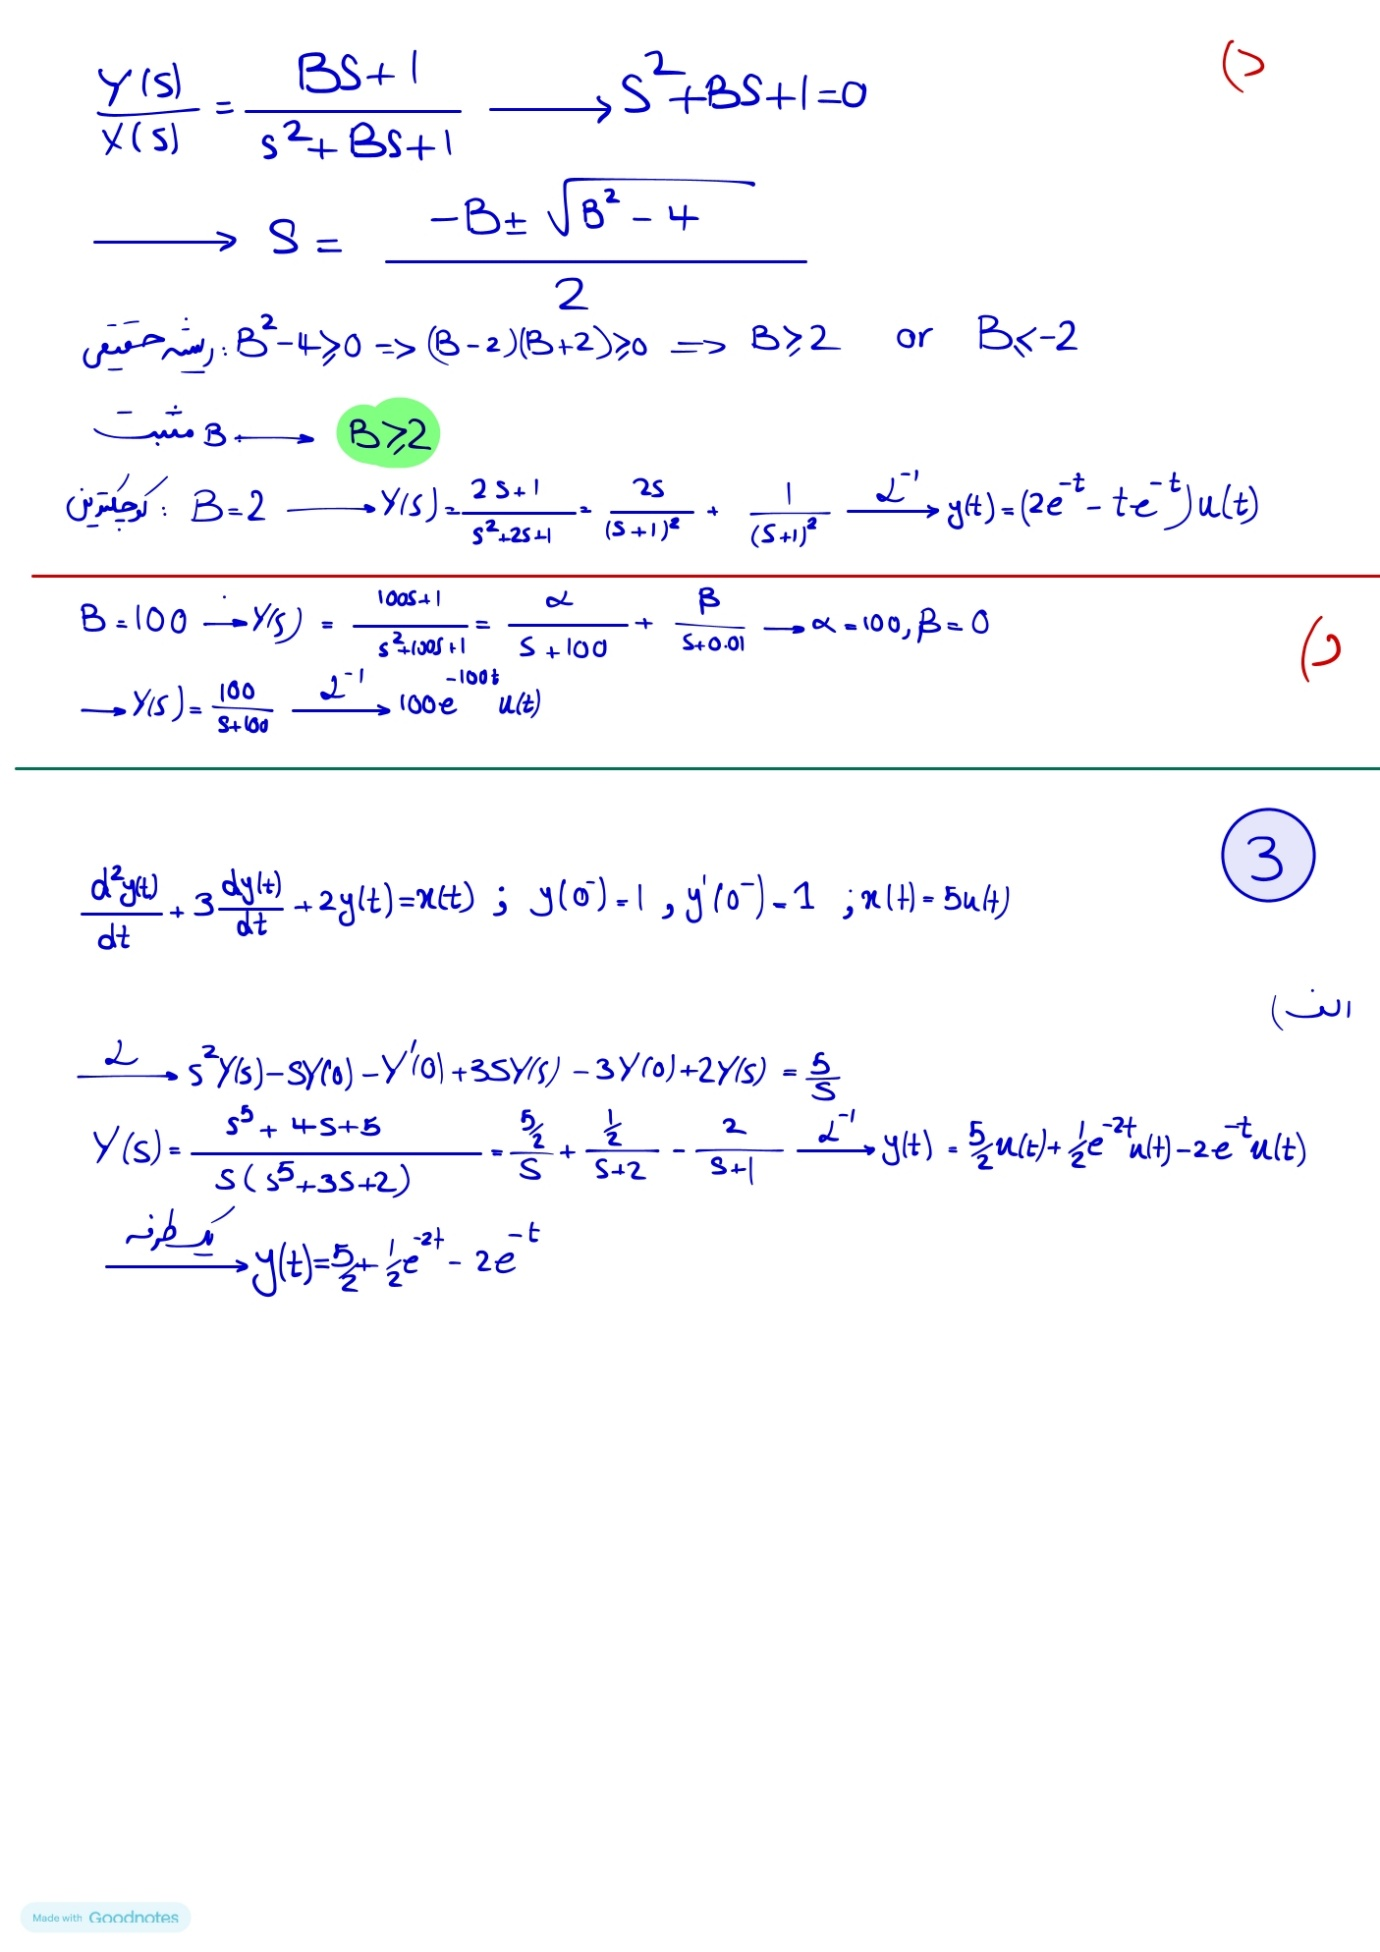 د)
Y(s)/X(s) = (BS+1)/(s²+BS+1) ⟶ S²+BS+1=0
⟶ S = (-B ± √(B²-4))/2
ریشه حقیقی: B²-4⩾0 => (B-2)(B+2)⩾0 => B⩾2 or B⩽-2
B مثبت ⟶ B⩾2
کوچکترین: B=2 ⟶ Y(s) = (2S+1)/(s²+2s+1) = 2S/(S+1)² + 1/(S+1)² ⟶ℒ⁻¹ y(t) = (2e^-t - te^-t)u(t)
B=100 ⟶ Y(s) = (100s+1)/(s²+100s+1) = α/(S+100) + β/(S+0.01) ⟶ α=100, β=0
⟶ Y(s) = 100/(S+100) ⟶ℒ⁻¹ 100e^-100t u(t)
3
d²y(t)/dt + 3dy(t)/dt + 2y(t) = x(t) ; y(0⁻)=1 , y'(0⁻)=1 ; x(t)=5u(t)
الف)
⟶ℒ s²Y(s)-SY(0)-Y'(0)+3SY(s)-3Y(0)+2Y(s) = 5/S
Y(S) = (s⁵+4S+5)/(S(s⁵+3S+2)) = (5/2)/S + (1/2)/(S+2) - 2/(S+1) ⟶ℒ⁻¹ y(t) = 5/2 u(t) + 1/2 e^-2t u(t) - 2e^-t u(t)
⟶یک طرفه y(t) = 5/2 + 1/2 e^-2t - 2e^-t
Made with Goodnotes